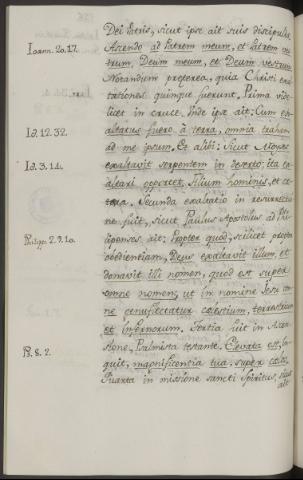 Dei Patris, sicut ipse ait suis discipulis:
Joann. 20. 17.
Ascendo ad Patrem meum, et Patrem ves-
trum, Deum meum, et Deum vestrum.
Notandum preterea, quia Christi exal-
tationes quinque fuerunt. Prima vide-
licet in cruce. Unde ipse ait: Cum exal-
Id. 12. 32.
tatus fuero a terra, omnia traham
ad me ipsum. Et alibi: Sicut Moyses
Id. 3. 14.
exaltavit serpentem in deserto; ita ex-
altari oportet Filium hominis, et ce-
tera. Secunda exaltatio in resurrectio-
ne fuit, sicut Paulus Apostolus ad Phi-
Philipp. 2. 9. 10.
lippenses ait: Propter quod, scilicet propter
obedientiam, Deus exaltavit illum, et
donavit illi nomen, quod est super
omne nomen, ut in nomine Jesu om-
ne genu flectatur cælestium, terrestrium
et infernorum. Tertia fuit in Ascen-
sione, Psalmista testante. Elevata est, in-
Ps. 8. 2.
quit, magnificentia tua super cælos.
Quarta in missione sancti Spiritus, sicut
ait